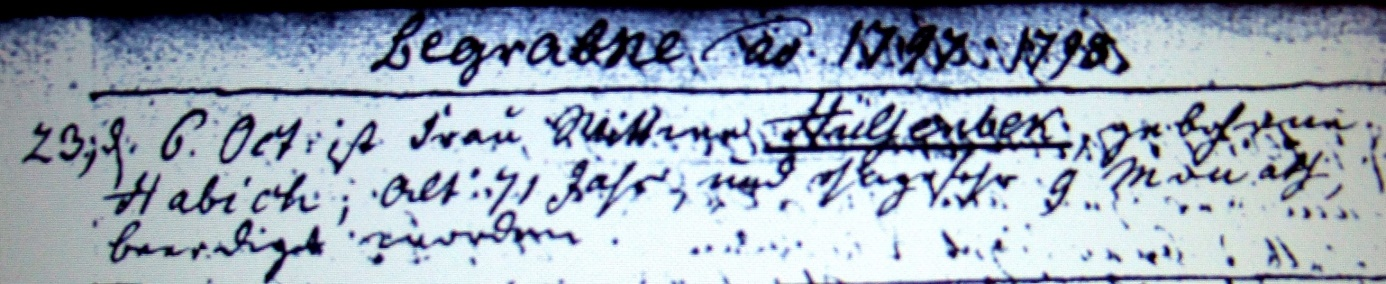 Begrabne ao. 1797. 1798.
23; d. 6. Oct: ist Frau Wittwe Hülsenbek, gebohrne
Habich; alt: 71 Jahr, und ohngefehr 9 Monath,
beerdigt worden.